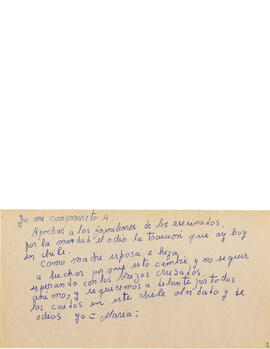 Yo me comprometo A.
Apochar a los familiares de los asesinados.
por la mardad el odio la traicion que ay hoy
en chile.
Como madre esposa e hija
a luchar por que esto cambie y no seguir
esperando con los brazos cruzados.
animo, y seguiremos a delante por todos
los caidos en este chile olvidado y de
odios yo = Maria =